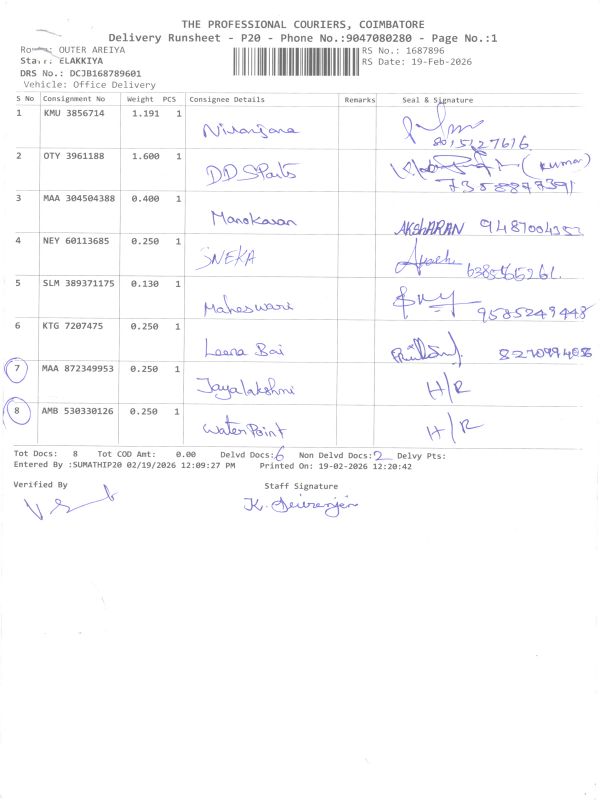 THE PROFESSIONAL COURIERS, COIMBATORE
Delivery Runsheet - P20 - Phone No.:9047080280 - Page No.:1
OUTER AREIYA RS No.: 1687896
ELAKKIYA RS Date: 19-Feb-2026
DRS No.: DCJB168789601
Vehicle: Office Delivery
S No Consignment No Weight PCS Consignee Details Remarks Seal & Signature
1 KMU 3856714 1.191 1 Niranjana
8015127616
2 OTY 3961188 1.600 1 DD Sports (Kumar)
7358877391
3 MAA 304504388 0.400 1 Manokaran AKSHARAN 9487004353
4 NEY 60113685 0.250 1 SNEKA
5 SLM 389371175 0.130 1 Maheswari 9585249448
6 KTG 7207475 0.250 1 Leena Bai
7 MAA 872349953 0.250 1 Jayalakshmi H/R
8 AMB 530330126 0.250 1 Water Point H/R
Tot Docs: 8 Tot COD Amt: 0.00 Delvd Docs:6 Non Delvd Docs:2 Delvy Pts:
Entered By :SUMATHIP20 02/19/2026 12:09:27 PM Printed On: 19-02-2026 12:20:42
Verified By Staff Signature